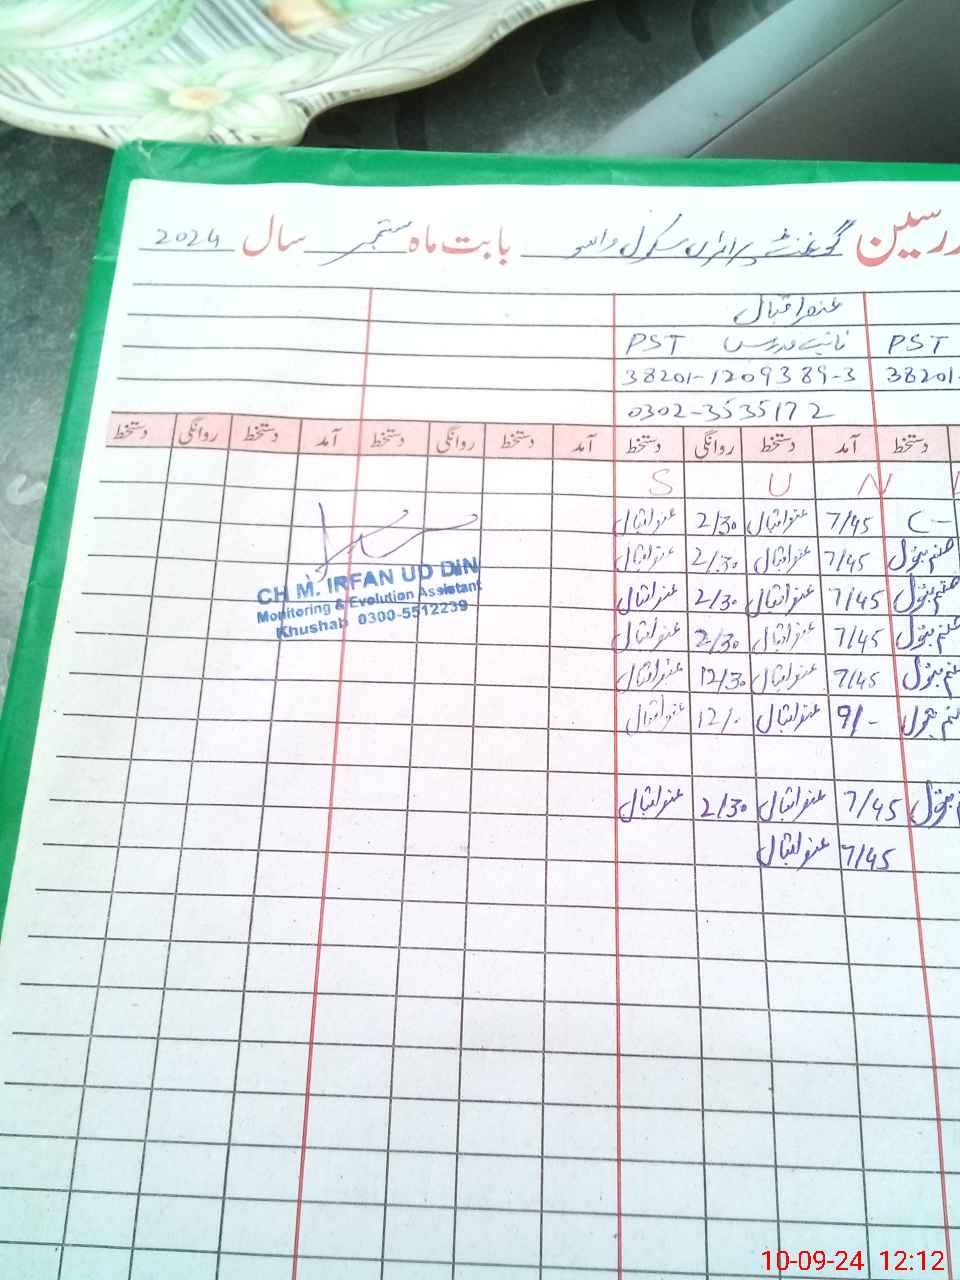 رسین گورنمنٹ پرائمری سکول واسو بابت ماہ ستمبر سال 2024
عنبر اقبال
PST نائب مدرس PST
38201-1209389-3 38201-
0302-3535172
دستخط آمد دستخط روانگی دستخط آمد دستخط روانگی دستخط آمد دستخط روانگی دستخط
N U S
C- 7/45 عنبر اقبال 2/30 عنبر اقبال
صنم بتول 7/45 عنبر اقبال 2/30 عنبر اقبال
صنم بتول 7/45 عنبر اقبال 2/30 عنبر اقبال
صنم بتول 7/45 عنبر اقبال 2/30 عنبر اقبال
صنم بتول 7/45 عنبر اقبال 12/30 عنبر اقبال
صنم بتول 9/- عنبر اقبال 12/- عنبر اقبال
بتول 7/45 عنبر اقبال 2/30 عنبر اقبال
7/45 عنبر اقبال
CH M. IRFAN UD DIN
Monitoring & Evolution Assistant
Khushab 0300-5512239
10-09-24 12:12